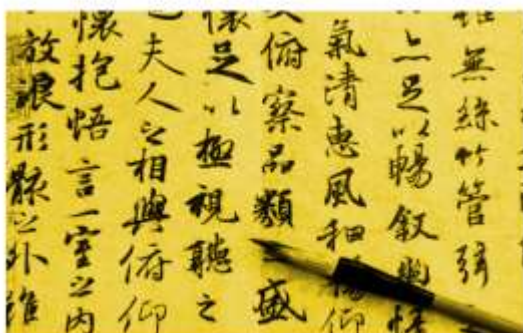 雖無絲竹管弦
亦足以暢叙幽情
氣清惠風和暢仰
俯察品類之盛
懷足以極視聽之
夫人之相與俯仰
懷抱悟言一室之内
放浪形骸之外雖